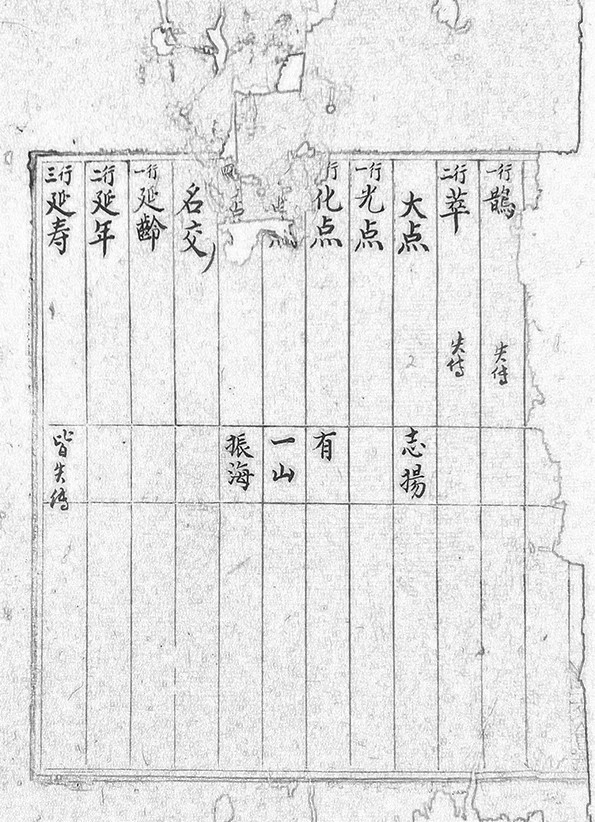 一行 鵲 失傳
二行 萃 失傳
大点 志揚
一行 光点
行 化点 有
一山
振海
名交
一行 延齡
二行 延年
三行 延寿 皆失傳